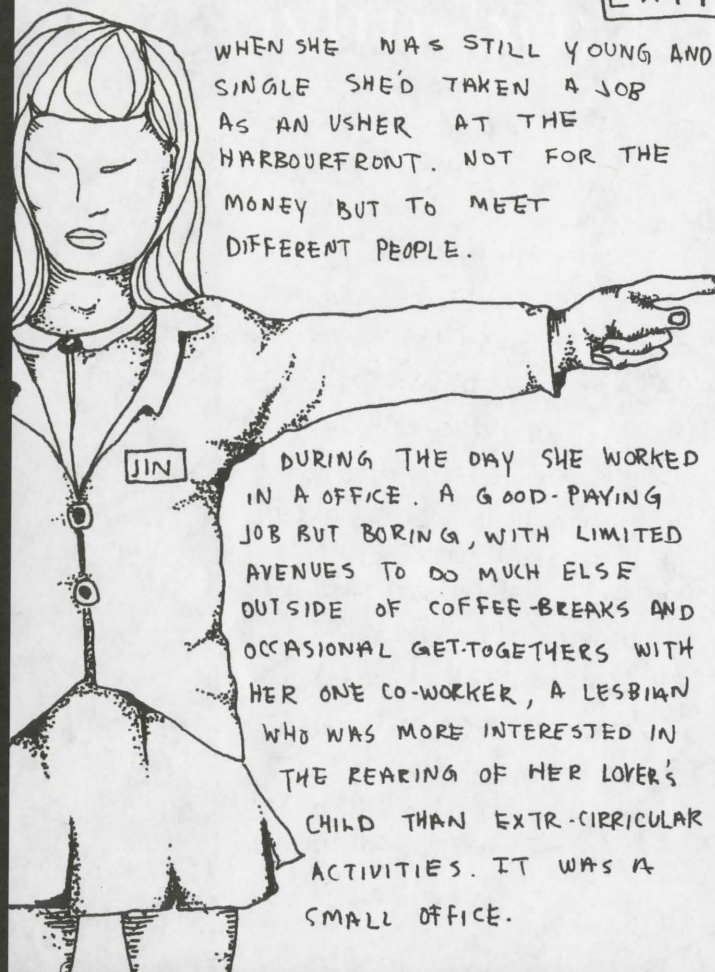 WHEN SHE WAS STILL YOUNG AND
SINGLE SHE'D TAKEN A JOB
AS AN USHER AT THE
HARBOURFRONT. NOT FOR THE
MONEY BUT TO MEET
DIFFERENT PEOPLE.
JIN
DURING THE DAY SHE WORKED
IN A OFFICE. A GOOD-PAYING
JOB BUT BORING, WITH LIMITED
AVENUES TO DO MUCH ELSE
OUTSIDE OF COFFEE-BREAKS AND
OCCASIONAL GET-TOGETHERS WITH
HER ONE CO-WORKER, A LESBIAN
WHO WAS MORE INTERESTED IN
THE REARING OF HER LOVER'S
CHILD THAN EXTR-CIRRICULAR
ACTIVITIES. IT WAS A
SMALL OFFICE.